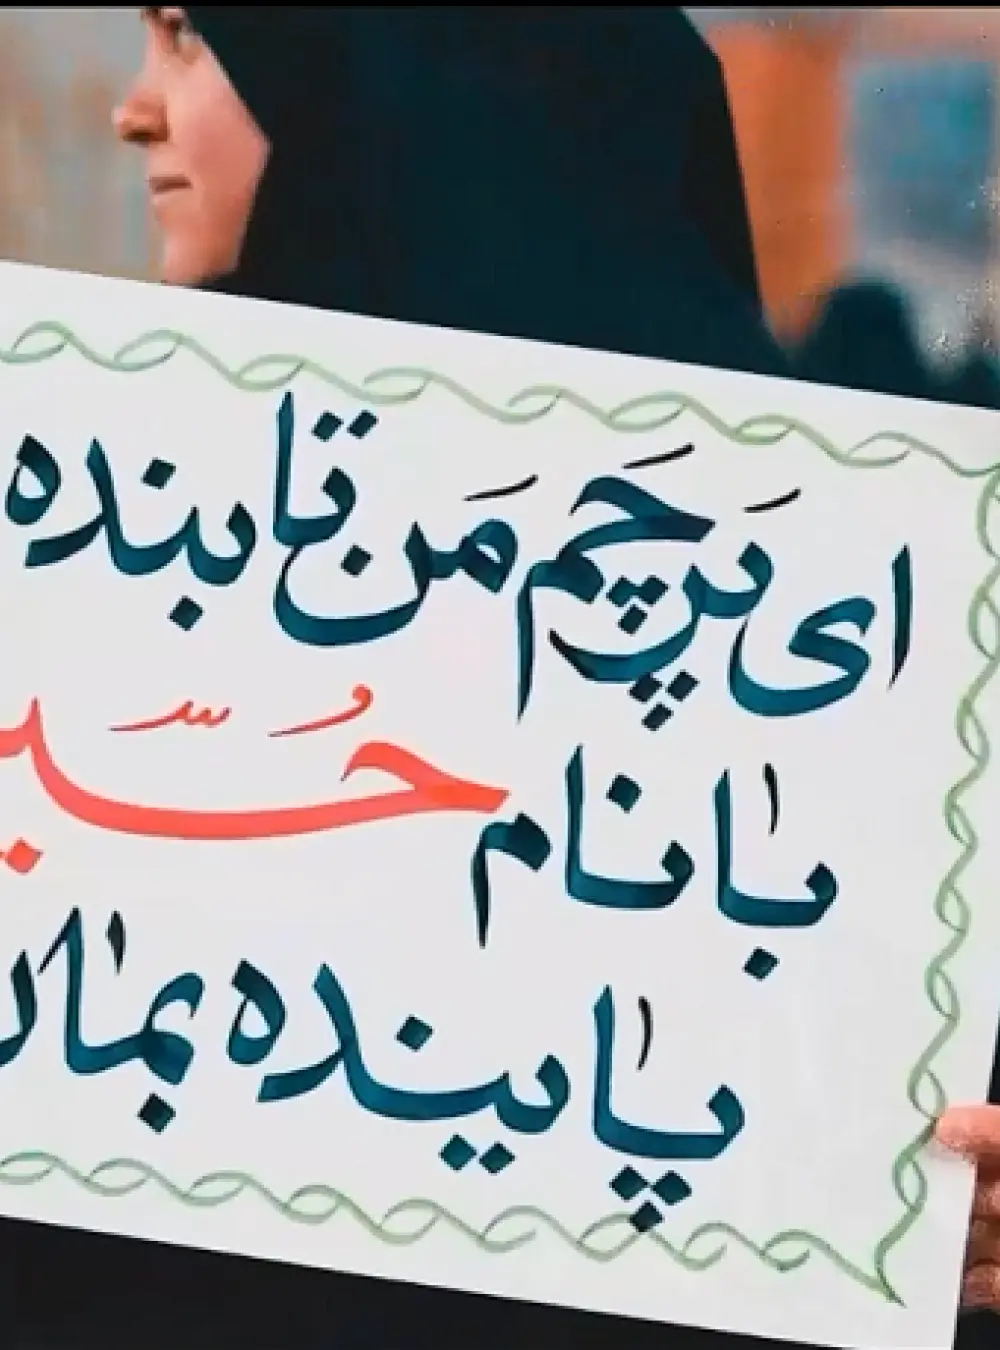 ای پَرچَم مَن تابنده
با نام حُسّیـ
پاینده بمان